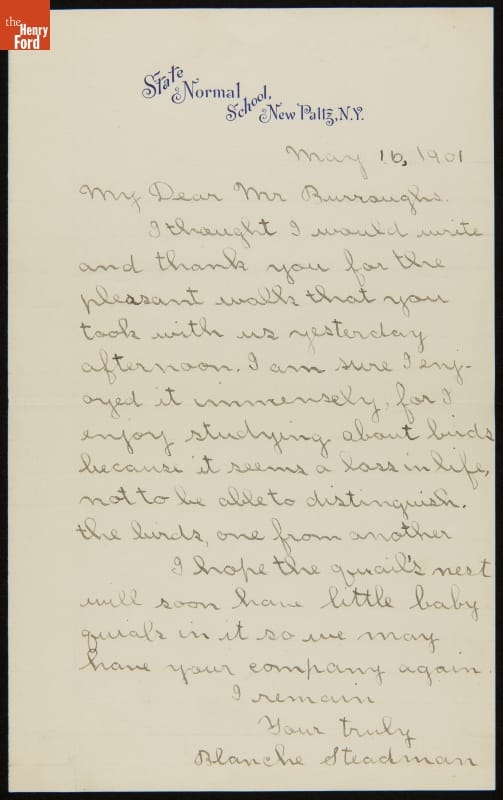 the
Henry
Ford
State Normal School, New Paltz, N.Y.
May 16, 1901
My Dear Mr Burroughs.
I thought I would write
and thank you for the
pleasant walk that you
took with us yesterday
afternoon. I am sure I enj-
oyed it immensely, for I
enjoy studying about birds
because it seems a loss in life,
not to be able to distinguish.
the birds, one from another
I hope the quail's nest
will soon have little baby
quials in it so we may
have your company again.
I remain
Your truly
Blanche Steadman